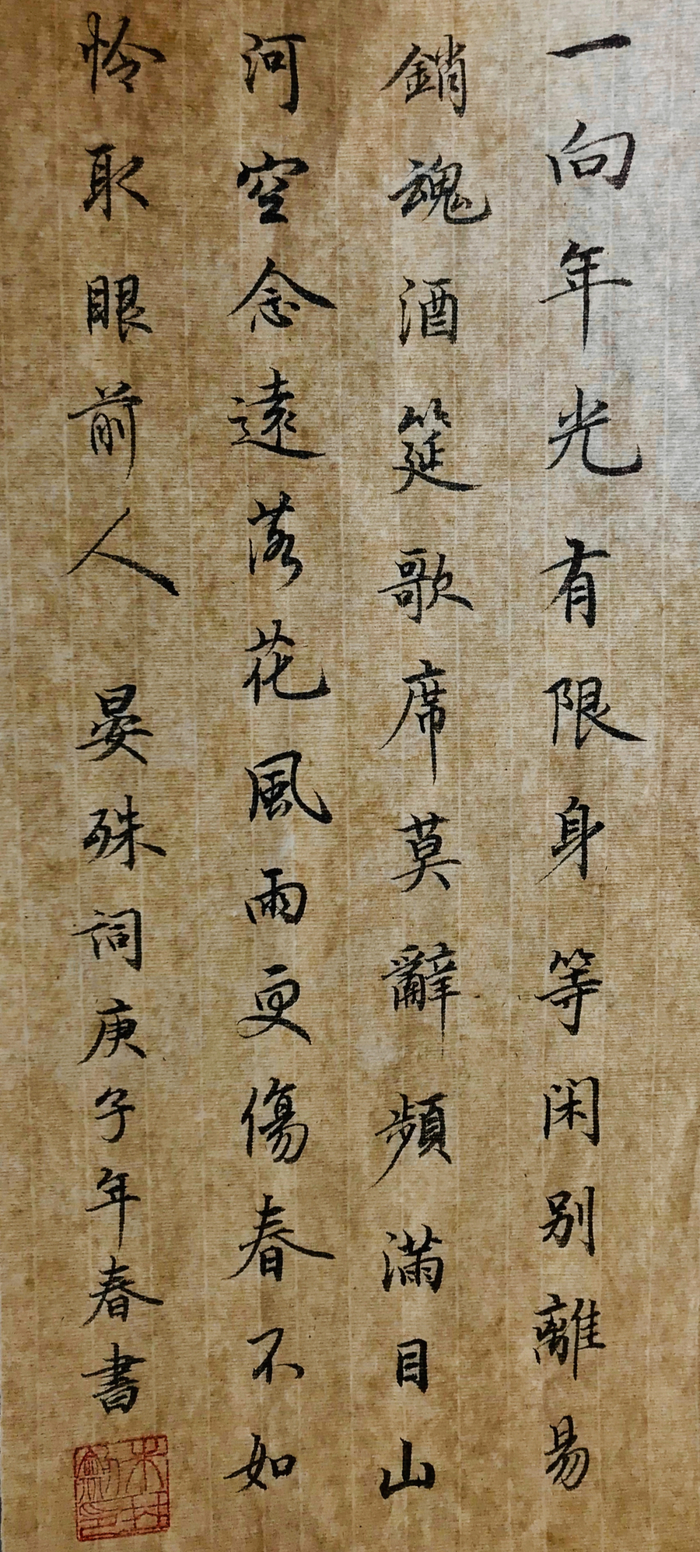 一向年光有限身等闲别離易
銷魂酒筵歌席莫辭頻滿目山
河空念遠落花風雨更傷春不如
怜取眼前人 晏殊詞庚子年春書